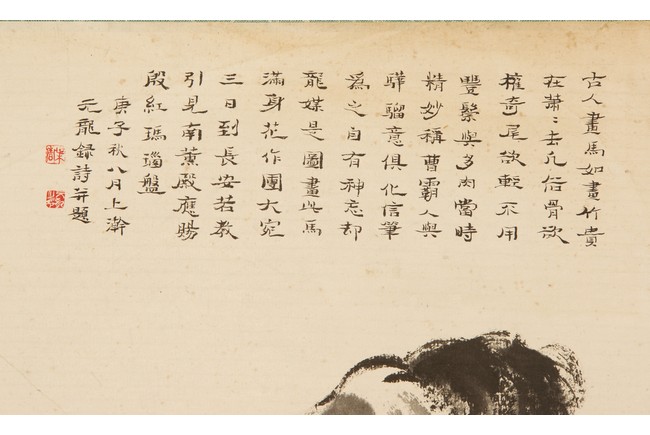 古人畫馬如畫竹貴
在蕭〻去凡俗骨欲
權奇尾欲輕不用
豐鬃與多肉當時
精妙稱曹霸人與
驊騮意俱化信筆
爲之自有神忘却
龍媒是圖畫此馬
滿身花作團大宛
三日到長安若教
引見南薰殿應賜
殷紅瑪瑙盤
庚子秋八月上澣
元龍錄詩并題